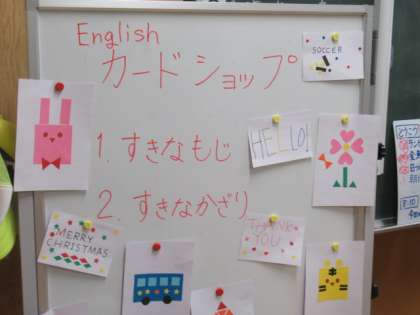 English
カードショップ
SOCCER
1. すきなもじ
HELLO!
2. すきなかざり
MERRY
CHRISTMAS
THANK
YOU